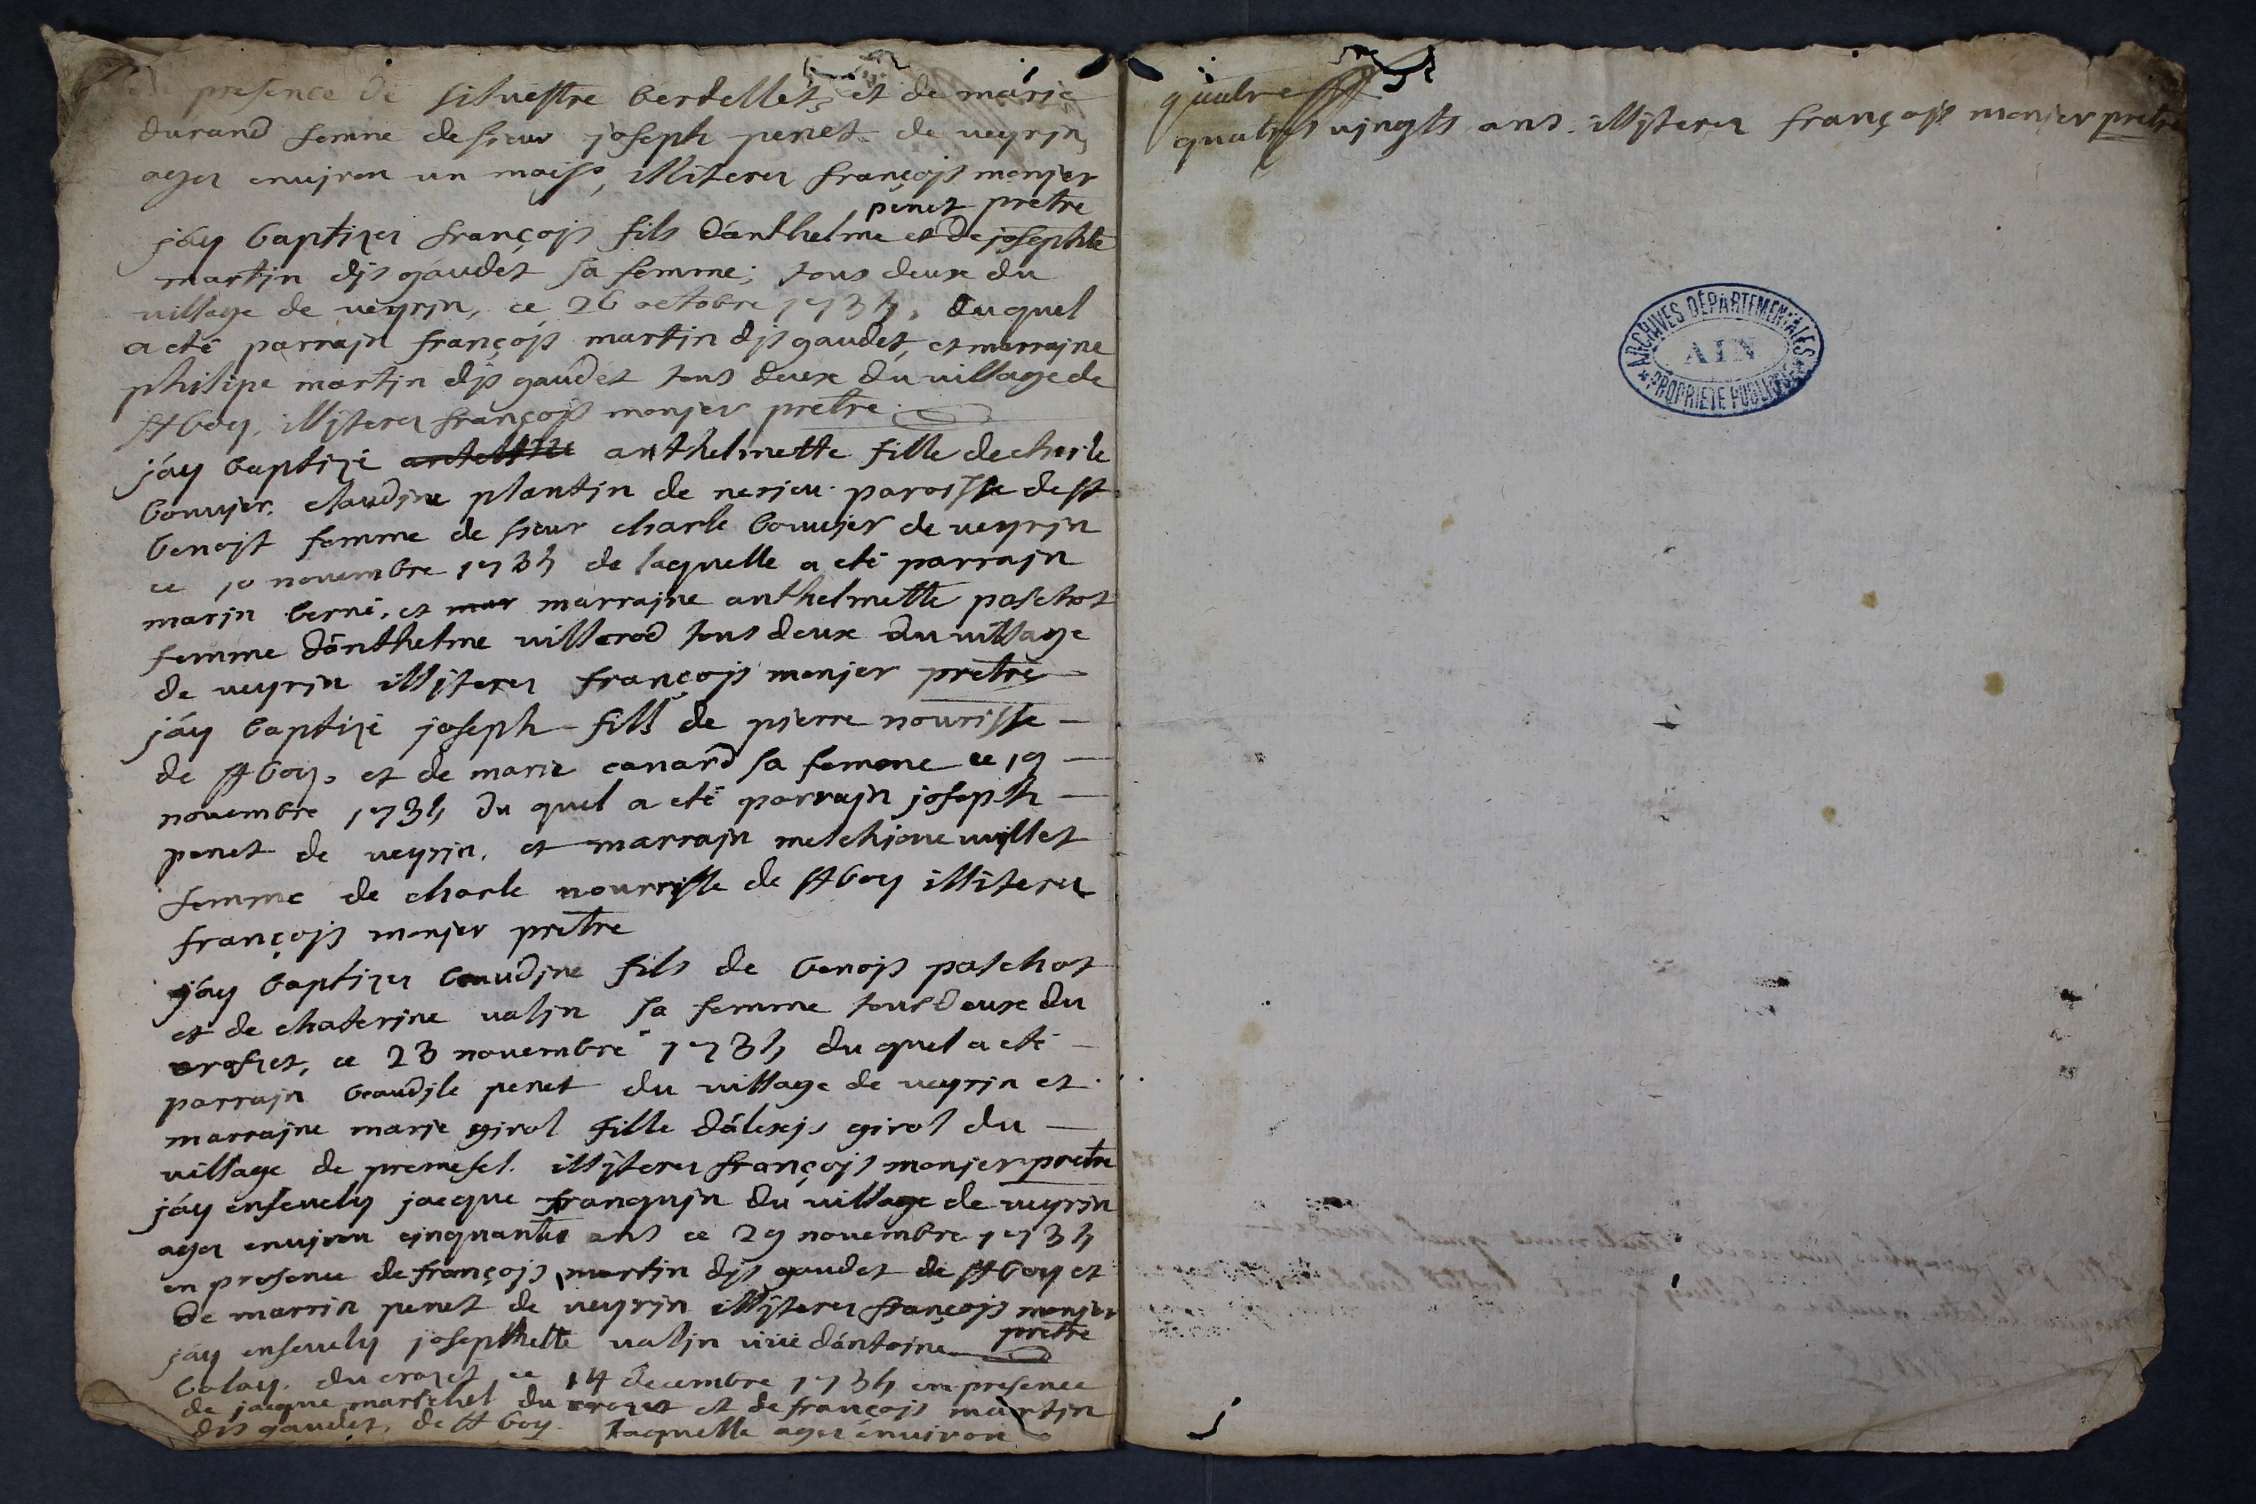 en presence de silvestre berdellet, et de marie
durand femme de sieur joseph penet de veyrin,
agez environ un moiss, illiterez françois monier
prêtre
j'ay baptizez françois fils d'anthelme penet et de josephte
martin dis gaudet sa femme; tous deux du
village de veyrin, ce 26 octobre 1734, duquel
a eté parrain françois martin dis gaudet, et marraine
philipe martin dis gaudet tous deux du village de
st boy, illiterez françois monier pretre.
j'ay baptizé anthelmette fille de charle
bouvier. claudine plantin de nerieu paroisse de st
benoist femme de sieur charle bouvier de veyrin
ce 10 novembre 1734 de laquelle a eté parrain
marin berné, et mar marraine anthelmette paschot
femme d'anthelme villerod tous deux du village
de veyrin illiterez françois monier pretre
j'ay baptizé joseph fils de pierre nourisse
de st boy, et de marie canard sa femme ce 19
novembre 1734 du quel a eté parrain joseph
penet de veyrin, et marrain melchione vuillet
femme de charle nourrisse de st boy illiterez
françois monier prêtre
j'ay baptizez baudine fils de benois paschot
et de chaterine valin sa femme tous deux du
crozet, ce 23 novembre 1734 du quel a eté
parrain baudile penet du village de veyrin et
marraine marie girol fille d'alexis girol du
village de premesel. illiterez françois monier pretre
j'ay ensevely jacque franquin du village de veyrin
agez environ cinquante ans ce 29 novembre 1734
en presence de françois martin dis gaudet de st boy et
de marrin penet de veyrin illiterez françois monier
pretre
j'ay ensevely josephette valin vive d'antoine
balay. du crozet ce 14 decembre 1734 en presence
de jacque marechel du crozet et de françois martin
dis gaudet, de st boy. laquelle agez environ
quatre
quatres vingts ans. illiterez françois monier pretre
ARCHIVES DÉPARTEMENTALES
AIN
PROPRIÉTÉ PUBLIQUE